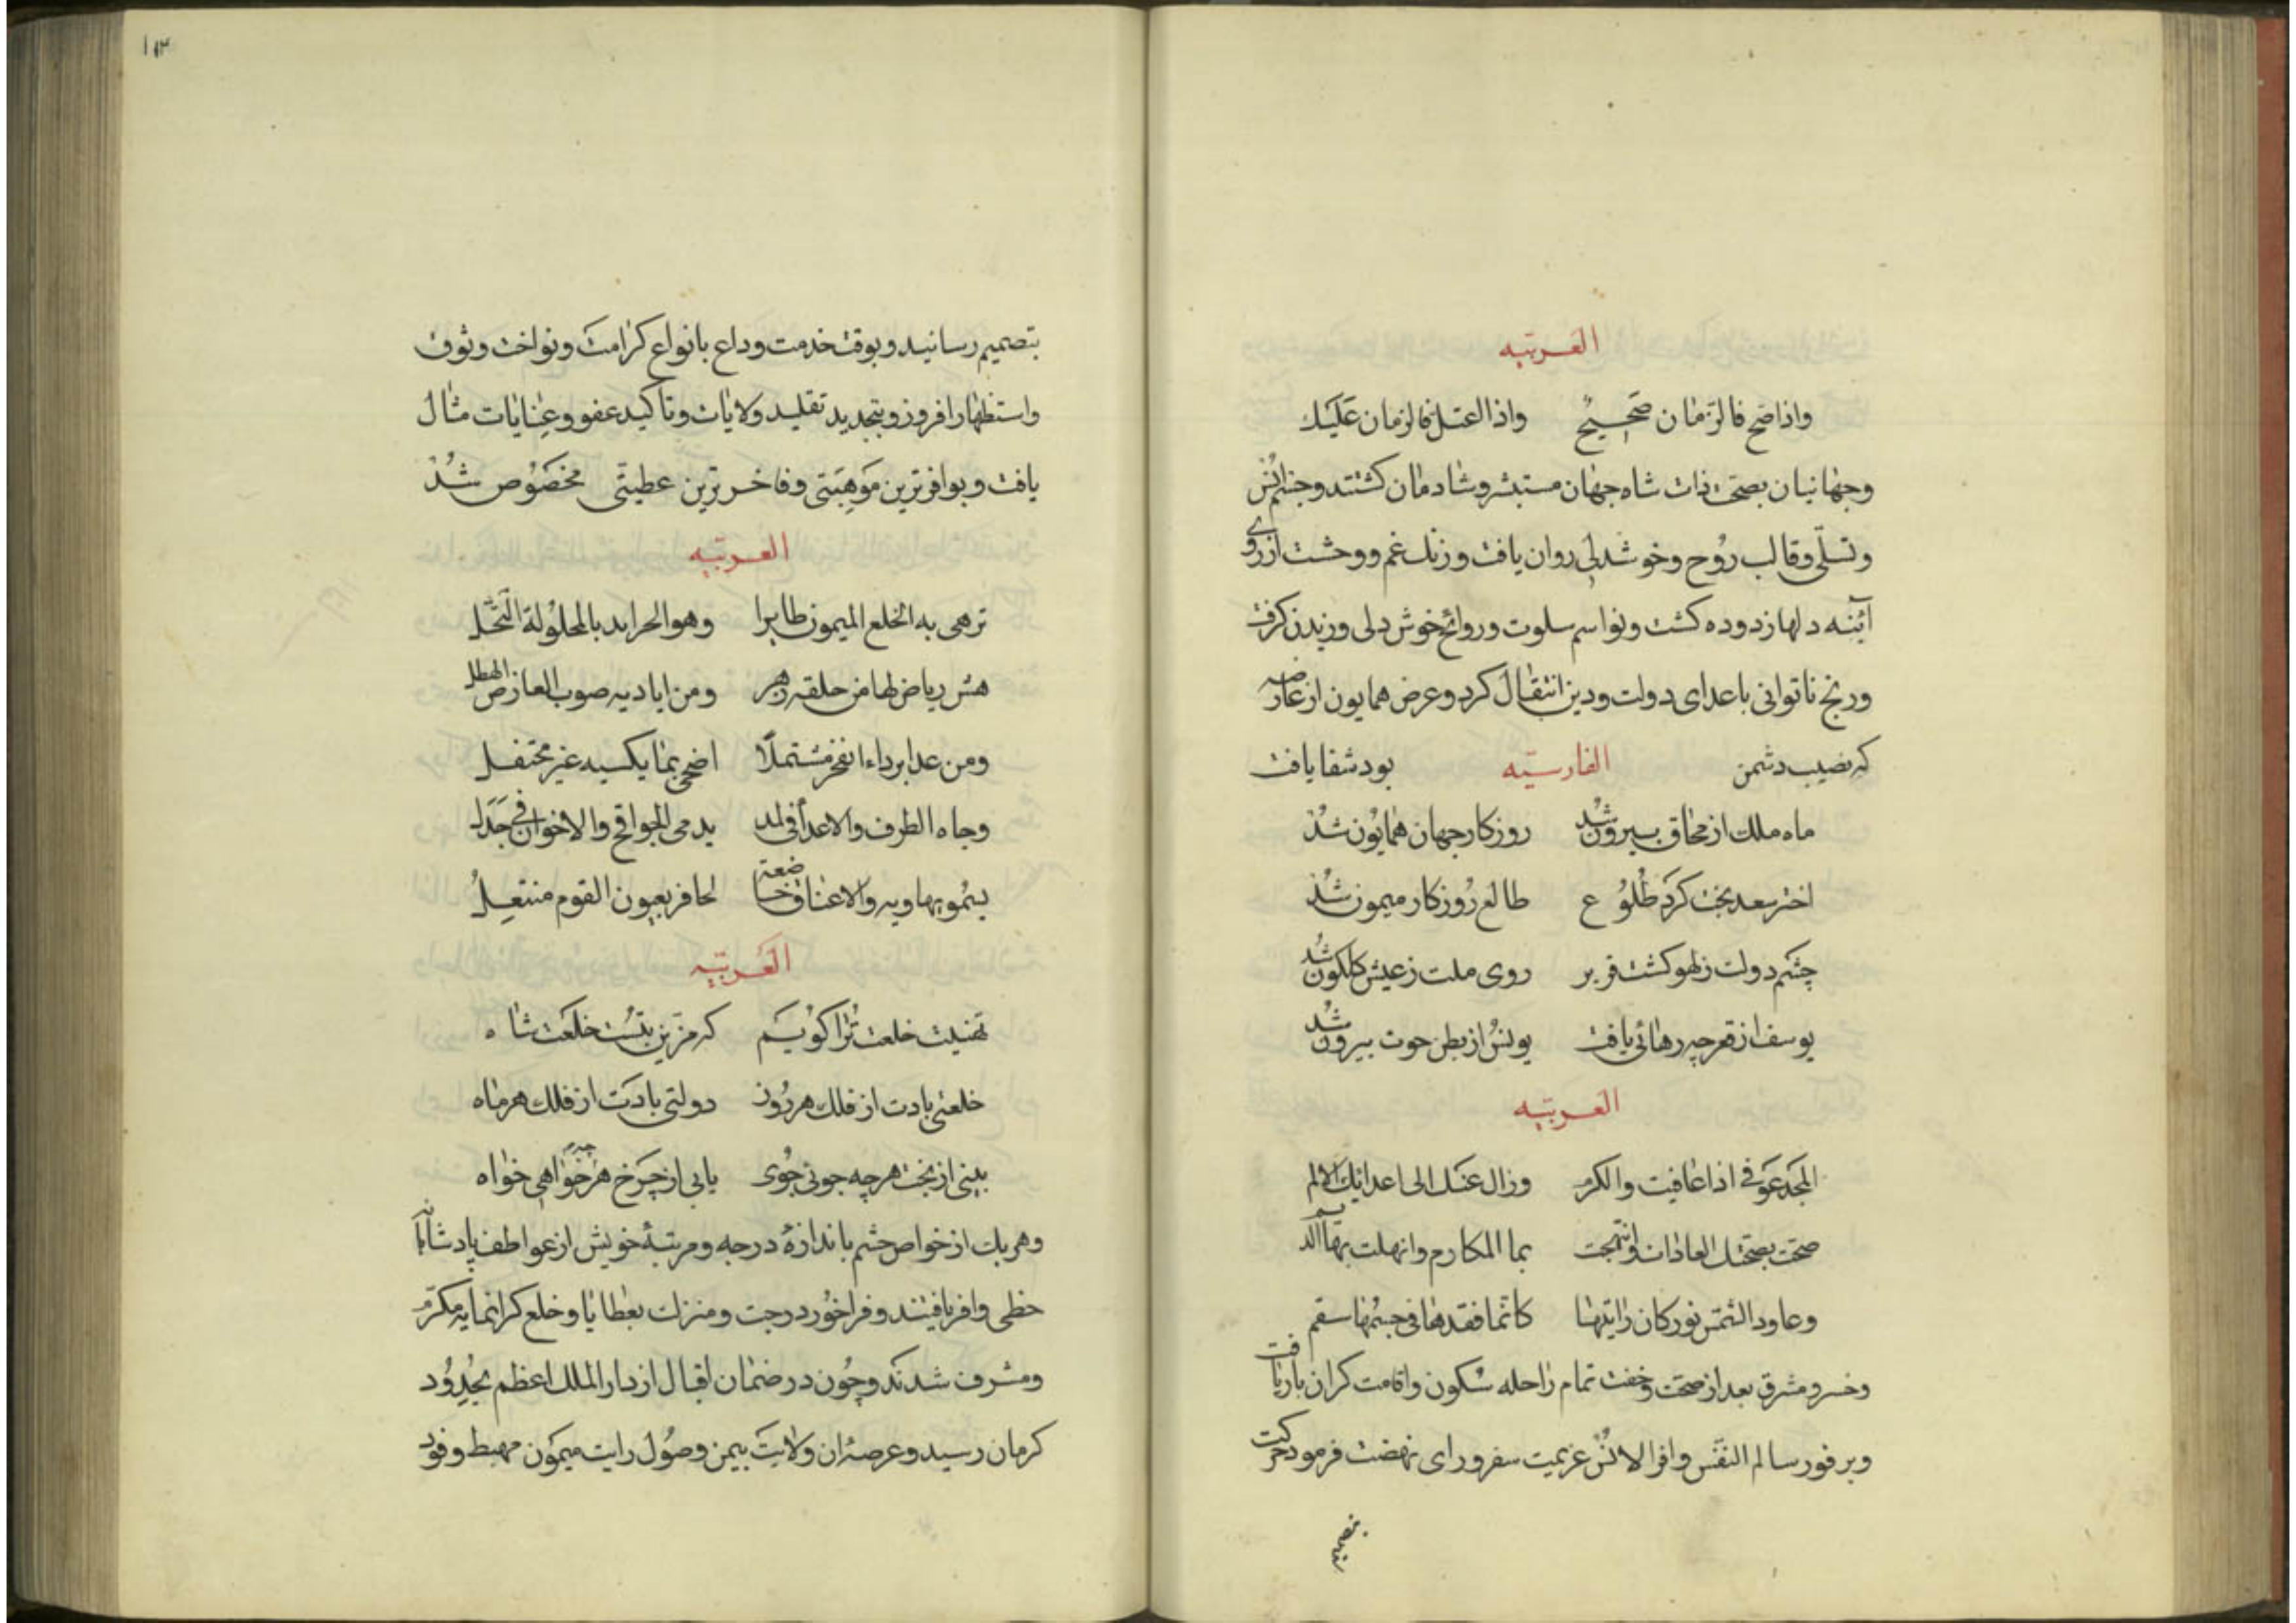 العربیه
واذا صح فالزمان صحیح واذا اعتل فالزمان علیل
وجهانیان بصحت ذات شاه جهان مستبشر وشادمان کشتند وجنان انس
وتسلی وقالب روح وخوشدلی روان یافت وزنک غم ووحشت از روی
آئینه دلها زدوده کشت ونواسم سلوت وروائح خوش دلی وزیدن کرفت
ورنج ناتوانی باعدای دولت ودین انتقال کرد وعرض همایون از عارضه
که نصیب دشمن الفارسیه بود شفا یافت
ماه ملک از محاق بیرون شد روزکار جهان همایون شد
اختر سعد بخت کرد طلوع طالع روزکار میمون شد
چشم دولت زلهو کشت قریر روی ملت زعیش کلکون شد
یوسف از قعر چه رهائی یافت یونس از بطن حوت بیرون شد
العربیه
المجد عوفی اذا عافیت والکرم وزال عنک الی اعدائک الالم
صحت بصحتک العادات وابتهجت بها المکارم وانهلت بها الدیم
وعاود الشمس نور کان زایلها کانما فقدها فی جسمها سقم
وخسرو مشرق بعد از صحت وخفت تمام راحله سکون واقامت کران بار یافت
وبر فور سالم النفس وافر الانس عزیمت سفر ورای نهضت فرمود حرکت
بتصمیم
۱۱۳
بتصمیم رسانید وبوقت خدمت وداع بانواع کرامت ونواخت وثوق
واستظهار افزود وبتجدید تقلید ولایات وتاکید عفو وعنایات مثال
یافت وبوافرترین موهبتی وفاخرترین عطیتی مخصوص شد
العربیه
تزهی به الخلع المیمون طایرا وهو الجراید بالمحلولة
ریاض لها من خلقه زهر ومن ایادیه صوب العارض الهطل
ومن غدا برداء الفخر مشتملا اضحی بما یکسیه غیر محتفل
وجاه الطرف والاعدا فی والاخوان فی جذل
یسمو بهادیه والاعناق خاضعة لحافر بعیون القوم منتعل
العربیه
تهنیت خلعت ترا کویم که مزین بتست خلعت شاه
خلعتی بادت از فلک هر روز دولتی بادت از فلک هر ماه
بینی از بخت هرچه جوئی جوی یابی از چرخ هرچه خواهی خواه
وهر یک از خواص حشم باندازه درجه ومرتبه خویش از عواطف پادشاهانه
حظی وافر یافتند وفراخور درجت ومنزلت بعطایا وخلع کرانمایه مکرم
ومشرف شدند وچون در ضمان اقبال از دار الملک اعظم بحدود
کرمان رسید وعرصه ان ولایت بیمن وصول رایت میمون مهبط وفود